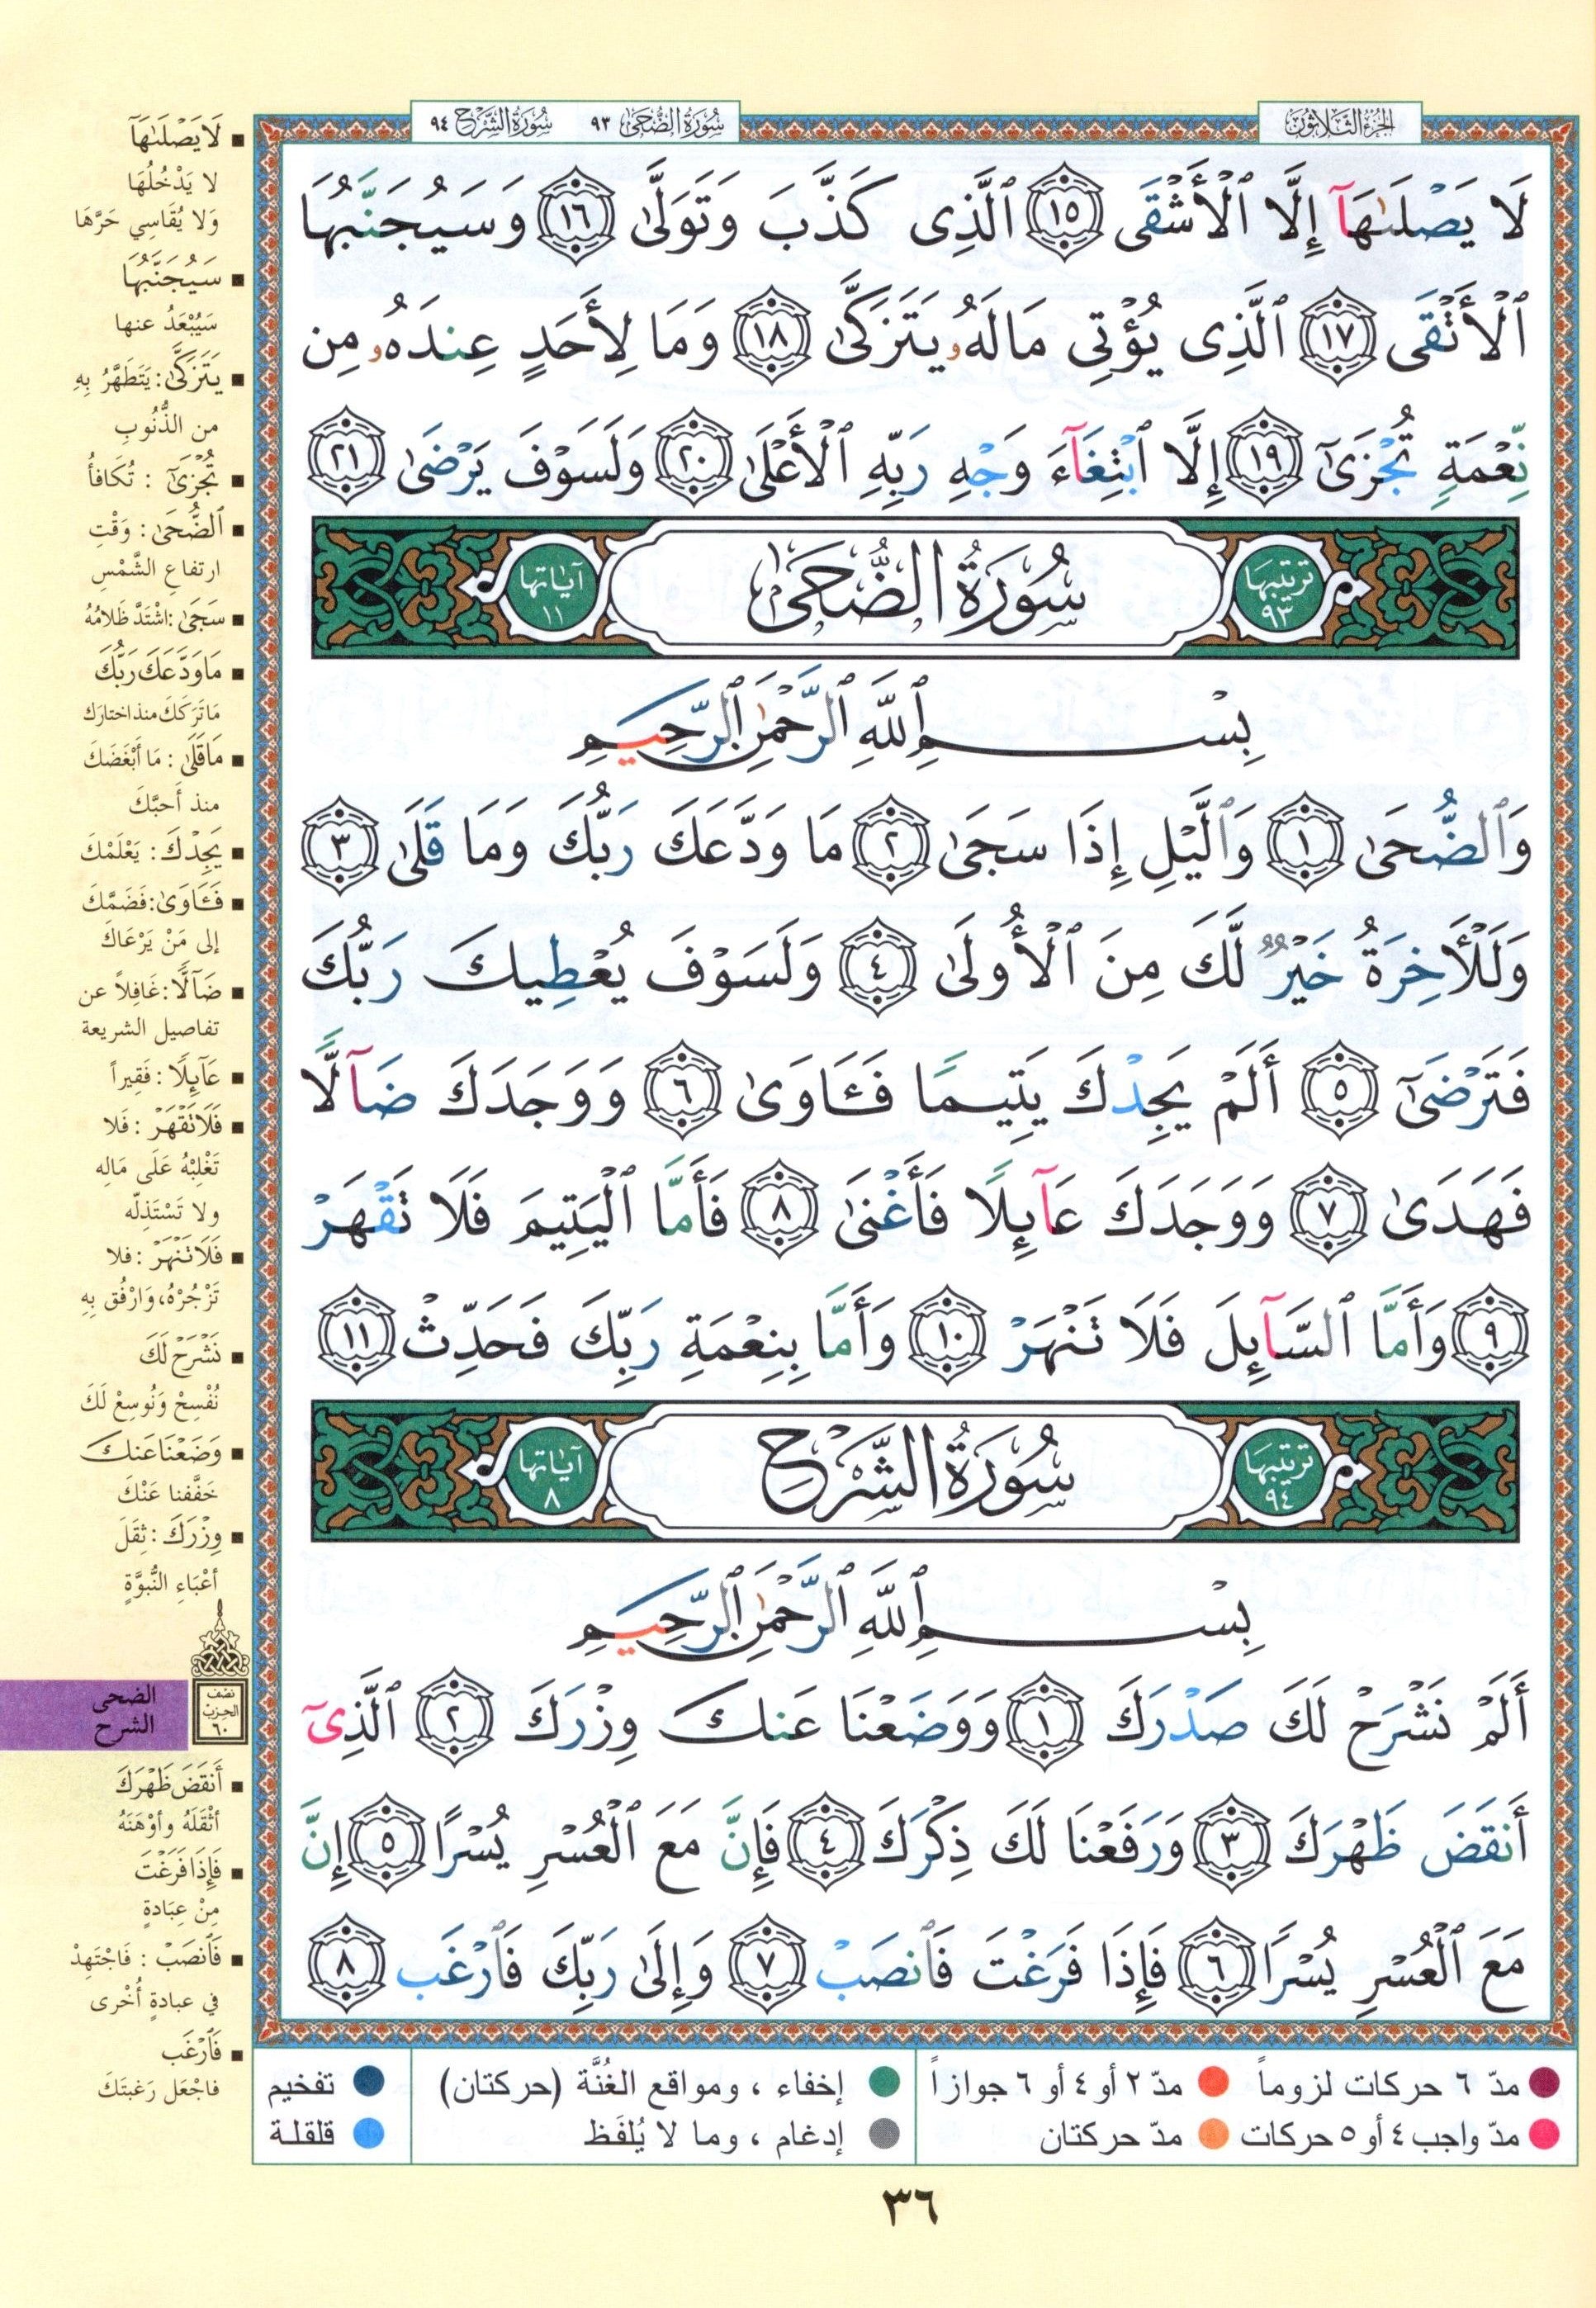 الجزء الثلاثون
سورة الضحى ٩٣ سورة الشرح ٩٤
لَا يَصْلَىٰهَآ إِلَّا ٱلْأَشْقَى ١٥ ٱلَّذِى كَذَّبَ وَتَوَلَّىٰ ١٦ وَسَيُجَنَّبُهَا
ٱلْأَتْقَى ١٧ ٱلَّذِى يُؤْتِى مَالَهُۥ يَتَزَكَّىٰ ١٨ وَمَا لِأَحَدٍ عِندَهُۥ مِن
نِّعْمَةٍ تُجْزَىٰٓ ١٩ إِلَّا ٱبْتِغَآءَ وَجْهِ رَبِّهِ ٱلْأَعْلَىٰ ٢٠ وَلَسَوْفَ يَرْضَىٰ ٢١
ترتيبها ٩٣ سُورَةُ الضُّحَىٰ آياتها ١١
بِسْمِ ٱللَّهِ ٱلرَّحْمَٰنِ ٱلرَّحِيمِ
وَٱلضُّحَىٰ ١ وَٱلَّيْلِ إِذَا سَجَىٰ ٢ مَا وَدَّعَكَ رَبُّكَ وَمَا قَلَىٰ ٣
وَلَلْأٓخِرَةُ خَيْرٌ لَّكَ مِنَ ٱلْأُولَىٰ ٤ وَلَسَوْفَ يُعْطِيكَ رَبُّكَ
فَتَرْضَىٰٓ ٥ أَلَمْ يَجِدْكَ يَتِيمًا فَـَٔاوَىٰ ٦ وَوَجَدَكَ ضَآلًّا
فَهَدَىٰ ٧ وَوَجَدَكَ عَآئِلًا فَأَغْنَىٰ ٨ فَأَمَّا ٱلْيَتِيمَ فَلَا تَقْهَرْ
٩ وَأَمَّا ٱلسَّآئِلَ فَلَا تَنْهَرْ ١٠ وَأَمَّا بِنِعْمَةِ رَبِّكَ فَحَدِّثْ ١١
ترتيبها ٩٤ سُورَةُ الشَّرْحِ آياتها ٨
بِسْمِ ٱللَّهِ ٱلرَّحْمَٰنِ ٱلرَّحِيمِ
أَلَمْ نَشْرَحْ لَكَ صَدْرَكَ ١ وَوَضَعْنَا عَنكَ وِزْرَكَ ٢ ٱلَّذِىٓ
أَنقَضَ ظَهْرَكَ ٣ وَرَفَعْنَا لَكَ ذِكْرَكَ ٤ فَإِنَّ مَعَ ٱلْعُسْرِ يُسْرًا ٥ إِنَّ
مَعَ ٱلْعُسْرِ يُسْرًا ٦ فَإِذَا فَرَغْتَ فَٱنصَبْ ٧ وَإِلَىٰ رَبِّكَ فَٱرْغَب ٨
لَا يَصْلَىٰهَآ
لا يَدْخُلُهَا
وَلا يُقَاسِي حَرَّهَا
سَيُجَنَّبُهَا
سَيُبْعَدُ عنها
يَتَزَكَّىٰ: يَتَطَهَّرُ بِهِ
من الذُّنُوبِ
تُجْزَىٰٓ : تُكَافأُ
ٱلضُّحَىٰ: وَقْتِ
ارتفاعِ الشَّمْسِ
سَجَىٰ: اشْتَدَّ ظَلامُهُ
مَا وَدَّعَكَ رَبُّكَ
مَا تَرَكَكَ منذ اختارَكَ
مَا قَلَىٰ : مَا أَبْغَضَكَ
منذ أَحبَّكَ
يَجِدْكَ: يَعْلَمْكَ
فَـَٔاوَىٰ: فَضَمَّكَ
إلى مَنْ يَرْعَاكَ
ضَآلًّا: غَافِلاً عن
تفاصيل الشريعة
عَآئِلًا: فَقِيراً
فَلَا تَقْهَرْ : فَلا
تَغْلِبْهُ عَلَى مَالِهِ
ولا تَسْتَذِلّه
فَلَا تَنْهَرْ : فلا
تَزْجُرْهُ، وَارْفُق بِهِ
نَشْرَحْ لَكَ
نُفْسِحْ وَنُوسِعْ لَكَ
وَضَعْنَا عَنكَ
خَفَّفنا عَنْكَ
وِزْرَكَ: ثِقَلَ
أعْبَاءِ النُّبوَّةِ
نصف
الحزب
٦٠
الضحى
الشرح
أَنقَضَ ظَهْرَكَ
أثْقَلَهُ وأوْهَنَهُ
فَإِذَا فَرَغْتَ
مِنْ عِبَادةٍ
فَٱنصَبْ : فَاجْتَهِدْ
في عبادةٍ أُخْرى
فَٱرْغَب
فاجْعَل رَغبتَكَ
مدّ ٦ حركات لزوماً مدّ ٢ أو ٤ أو ٦ جوازاً إخفاء ، ومواقع الغُنَّة (حركتان) تفخيم
مدّ واجب ٤ أو ٥ حركات مدّ حركتان إدغام ، وما لا يُلفَظ قلقلة
٣٦